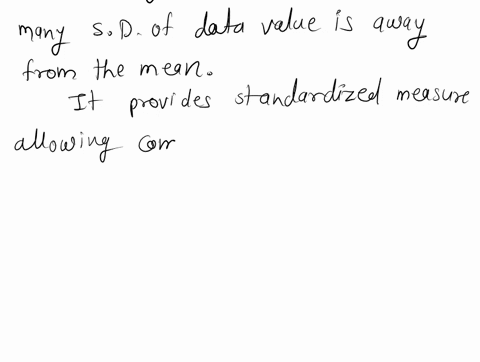 many S.D. of data value is away
from the mean.
It provides standardized measure
allowing com